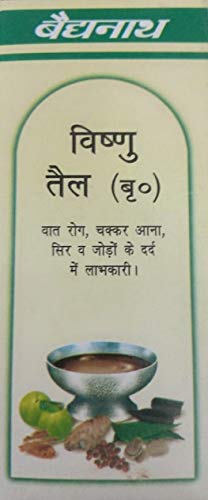 बैद्यनाथ
विष्णु
तैल (बृ०)
वात रोग, चक्कर आना,
सिर व जोड़ों के दर्द
में लाभकारी।